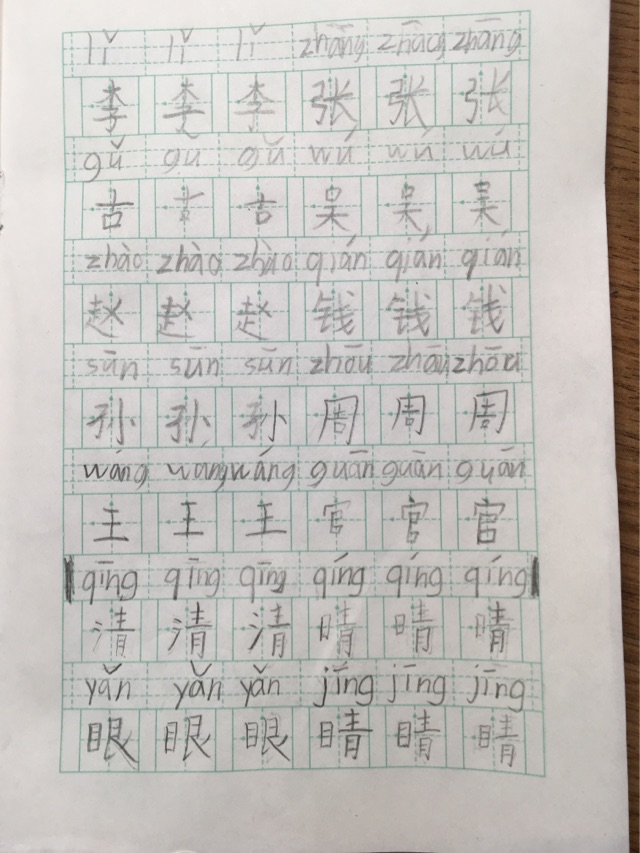 lǐ lǐ lǐ zhāng zhāng zhāng
李 李 李 张 张 张
gǔ gǔ gǔ wú wú wú
古 古 古 吴 吴 吴
zhào zhào zhào qián qián qián
赵 赵 赵 钱 钱 钱
sūn sūn sūn zhōu zhōu zhōu
孙 孙 孙 周 周 周
wáng wáng wáng guān guān guān
王 王 王 官 官 官
qīng qīng qīng qíng qíng qíng
清 清 清 晴 晴 晴
yǎn yǎn yǎn jīng jīng jīng
眼 眼 眼 睛 睛 睛